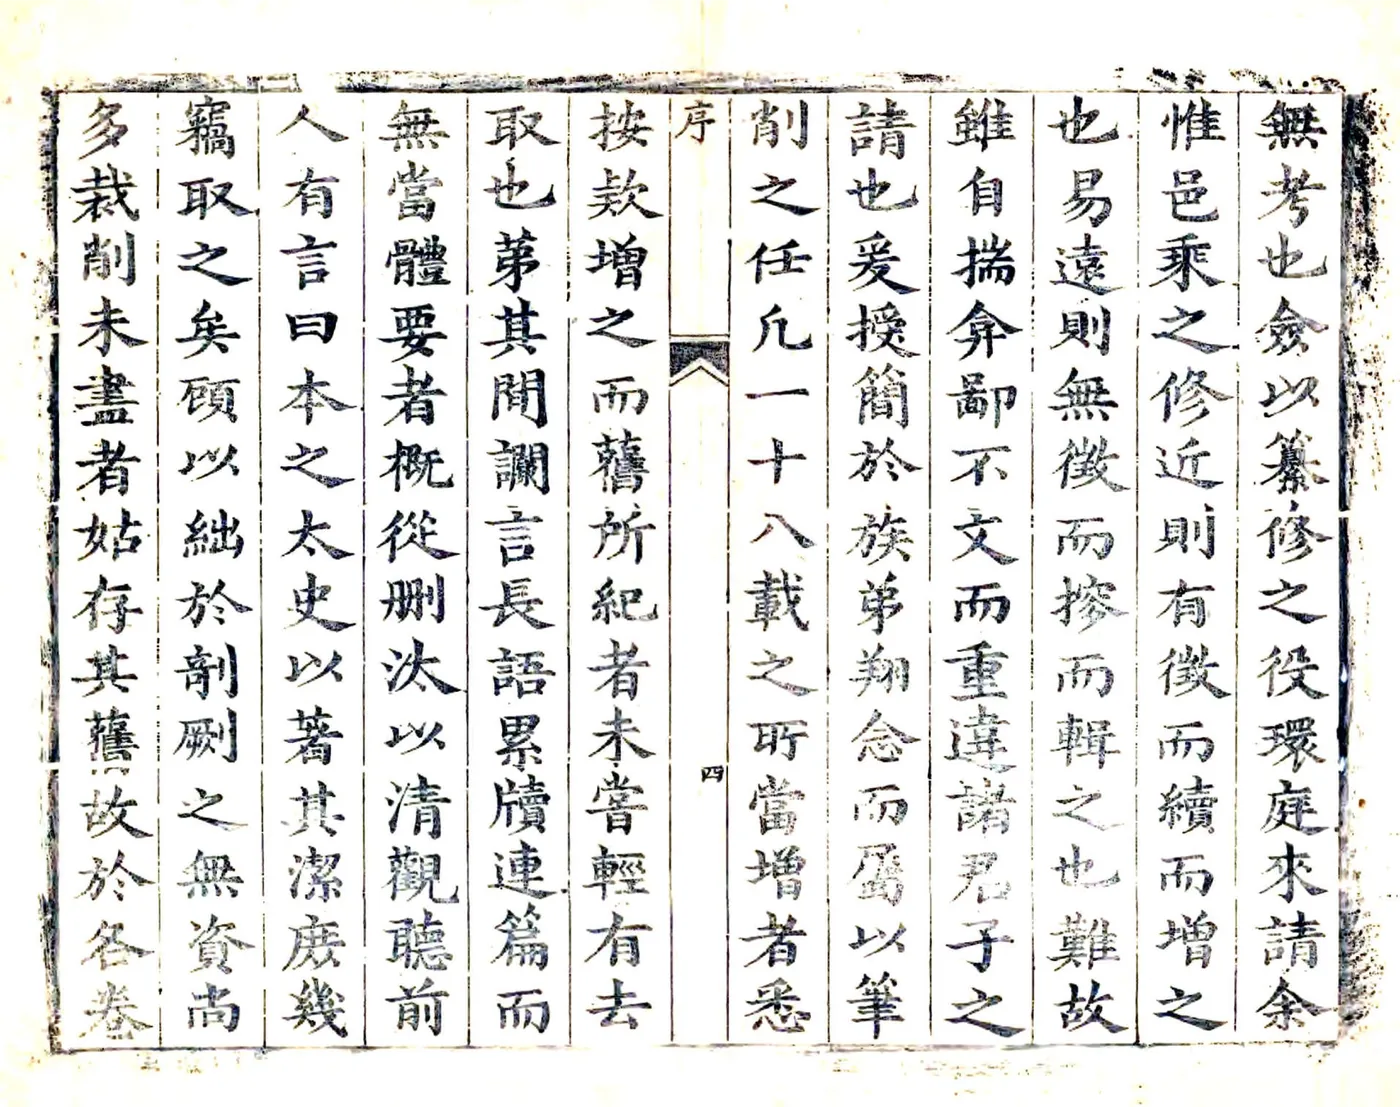 無考也僉以纂修之役環庭來請余
惟邑乘之修近則有徵而續而增之
也易遠則無徵而摉而輯之也難故
雖自揣弇鄙不文而重違諸君子之
請也爰授簡於族弟翔念而屬以筆
削之任凢一十八載之所當增者悉
序
四
按欵增之而舊所紀者未嘗輕有去
取也苐其間讕言長語累牘連篇而
無當體要者概從删汰以清觀聽前
人有言曰本之太史以著其潔庶幾
竊取之矣顧以絀於剞劂之無資尚
多裁削未盡者姑存其舊故於各卷